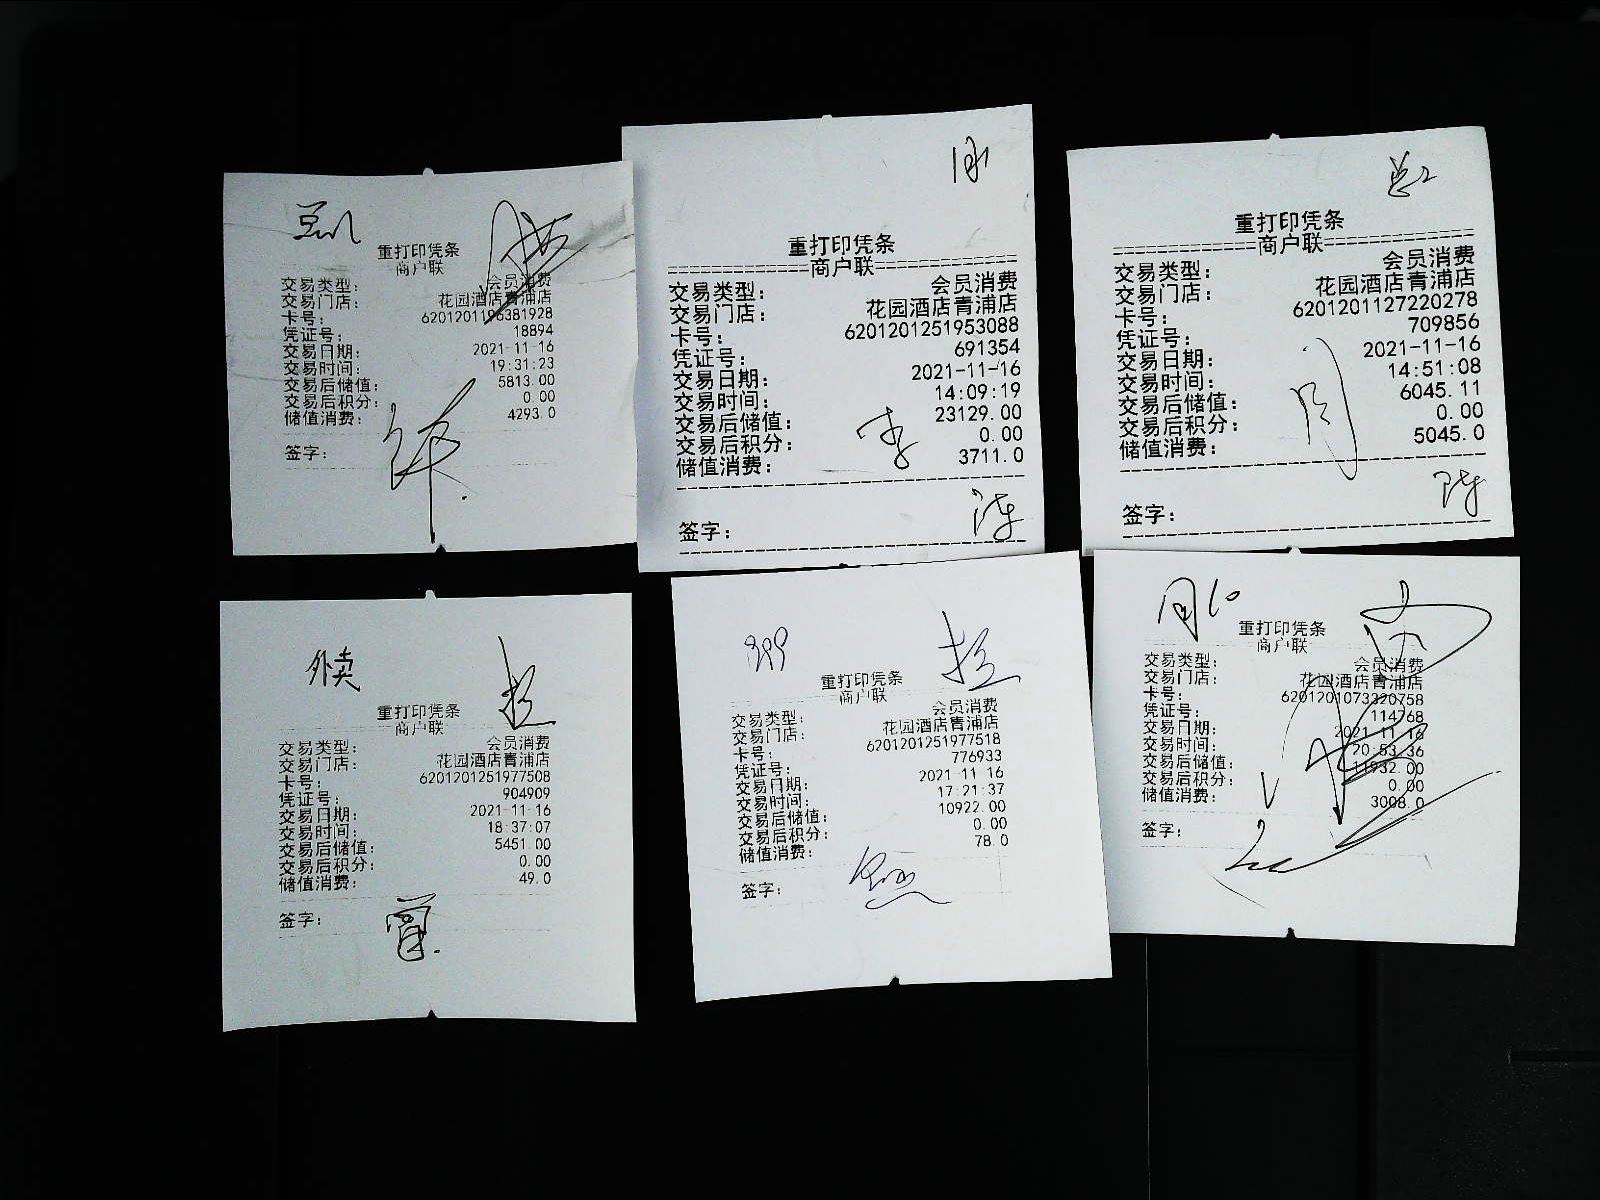 重打印凭条
商户联
交易类型: 会员消费
交易门店: 花园酒店青浦店
卡号: 6201201196381928
凭证号: 18894
交易日期: 2021-11-16
交易时间: 19:31:23
交易后储值: 5813.00
交易后积分: 0.00
储值消费: 4293.0
签字:
重打印凭条
商户联
交易类型: 会员消费
交易门店: 花园酒店青浦店
卡号: 6201201251953088
凭证号: 691354
交易日期: 2021-11-16
交易时间: 14:09:19
交易后储值: 23129.00
交易后积分: 0.00
储值消费: 3711.0
李
签字:
重打印凭条
商户联
交易类型: 会员消费
交易门店: 花园酒店青浦店
卡号: 6201201127220278
凭证号: 709856
交易日期: 2021-11-16
交易时间: 14:51:08
交易后储值: 6045.11
交易后积分: 0.00
储值消费: 5045.0
签字:
外卖
重打印凭条
商户联
交易类型: 会员消费
交易门店: 花园酒店青浦店
卡号: 6201201251977508
凭证号: 904909
交易日期: 2021-11-16
交易时间: 18:37:07
交易后储值: 5451.00
交易后积分: 0.00
储值消费: 49.0
签字:
重打印凭条
商户联
交易类型: 会员消费
交易门店: 花园酒店青浦店
卡号: 6201201251977518
凭证号: 776933
交易日期: 2021-11-16
交易时间: 17:21:37
交易后储值: 10922.00
交易后积分: 0.00
储值消费: 78.0
签字:
重打印凭条
商户联
交易类型: 会员消费
交易门店: 花园酒店青浦店
卡号: 6201201073320758
凭证号: 114768
交易日期: 2021-11-16
交易时间: 20:53:36
交易后储值: 11932.00
交易后积分: 0.00
储值消费: 3008.0
签字: